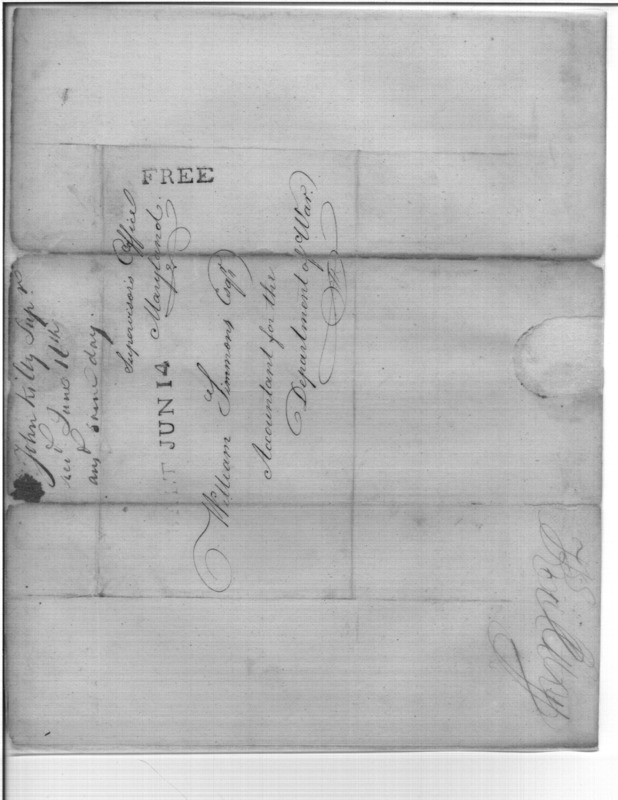 John Kilty Supr
recd June 16th
ansd same day.
Supervisors Office
Maryland.
FREE
JUN 14
William Simmons Esqr
Accountant for the
Department of War.